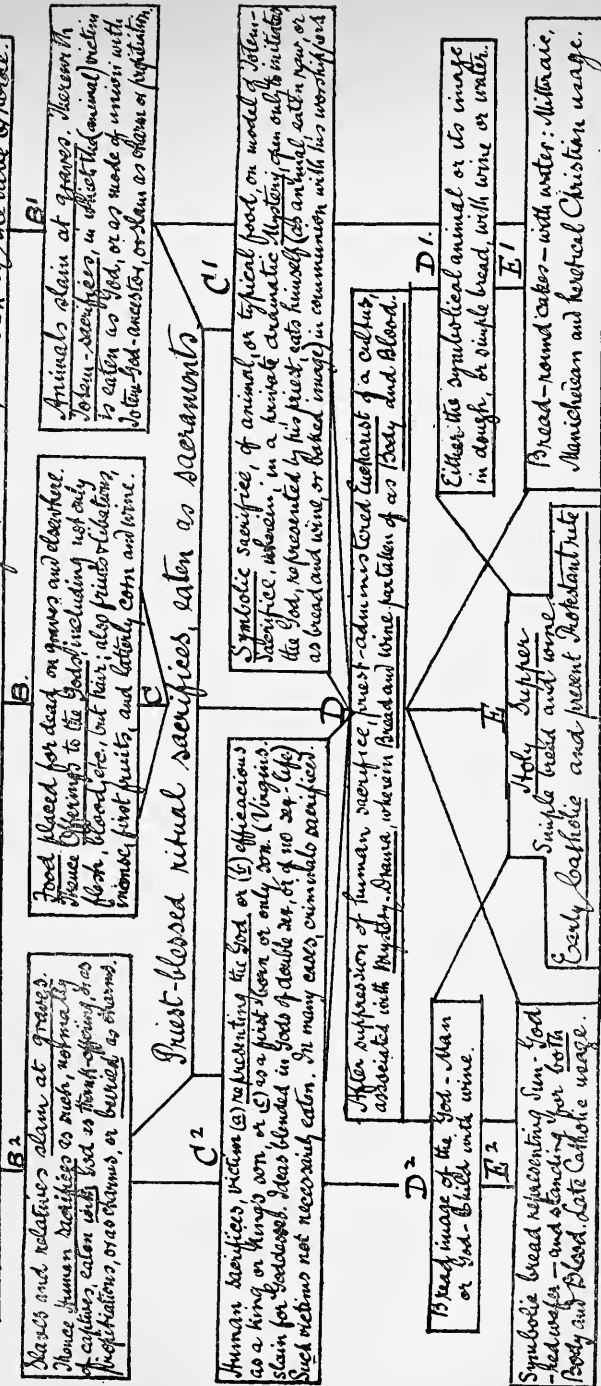 of the tribe or horde.
B²
Slaves and relatives slain at graves.
Thence human sacrifices as such, normally
of captives, eaten with God as thank-offering, or as
propitiations, or as charms, or buried as charms.
B.
Food placed for dead on graves and elsewhere.
Thence Offerings to the Gods, including not only
flesh, blood, etc., but hair; also fruits & libations,
incense, first fruits, and latterly corn and wine.
B¹
Animals slain at graves. Therewith
Totem-sacrifices, in which the (animal) victim
is eaten as God, or as mode of union with
Totem-God-ancestor, or slain as charm or propitiation.
C
Priest-blessed ritual sacrifices, eaten as sacraments.
C²
Human sacrifices, victim (a) representing the God or (b) efficacious
as a King or King's son or (c) as a first-born or only son. (Virgins
slain for Goddesses. Ideas blended in Gods of double sex, or of no sex-life)
Such victims not necessarily eaten. In many cases, criminals sacrificed.
C¹
Symbolic sacrifice, of animal, or typical food, on model of Totem-
Sacrifice, wherein, in a private dramatic Mystery, open only to initiates,
the God, represented by his priest, eats himself (as animal, eaten raw, or
as bread and wine, or baked image) in communion with his worshippers
D
After suppression of human sacrifice, priest-administered Eucharist of a cultus,
associated with Mystery-Drama, wherein Bread and wine partaken of as Body and Blood.
D²
Bread image of the God-Man
or God-Child with wine.
D¹.
Either the symbolical animal or its image
in dough, or simple bread, with wine or water.
E²
Symbolic bread representing Sun-God
-ked wafer—and standing for both
Body and Blood. Late Catholic usage.
E
Holy Supper
Simple bread and wine
Early Catholic and present Protestant rite
E¹
Bread-round cakes—with water: Mithraic,
Manichæan and heretical Christian usage.